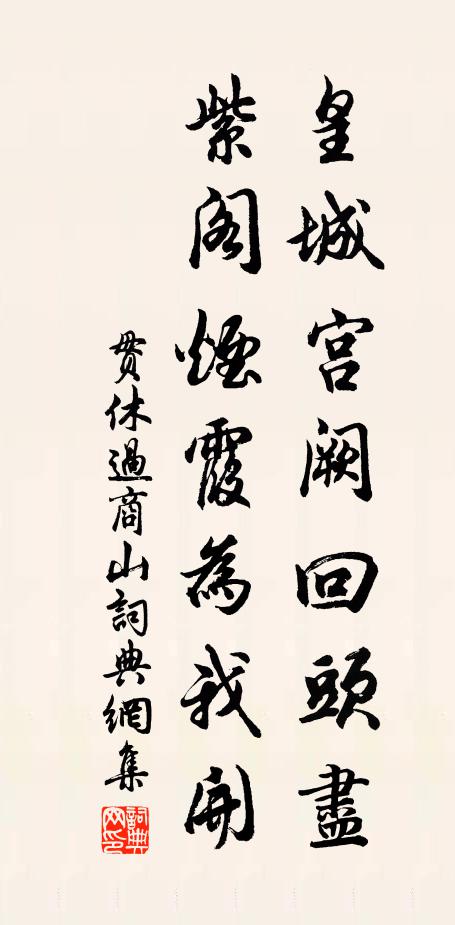 皇城宫阙回頭盡
紫阁煙霞為我開
貫休過商山詞典網集
詞典網印